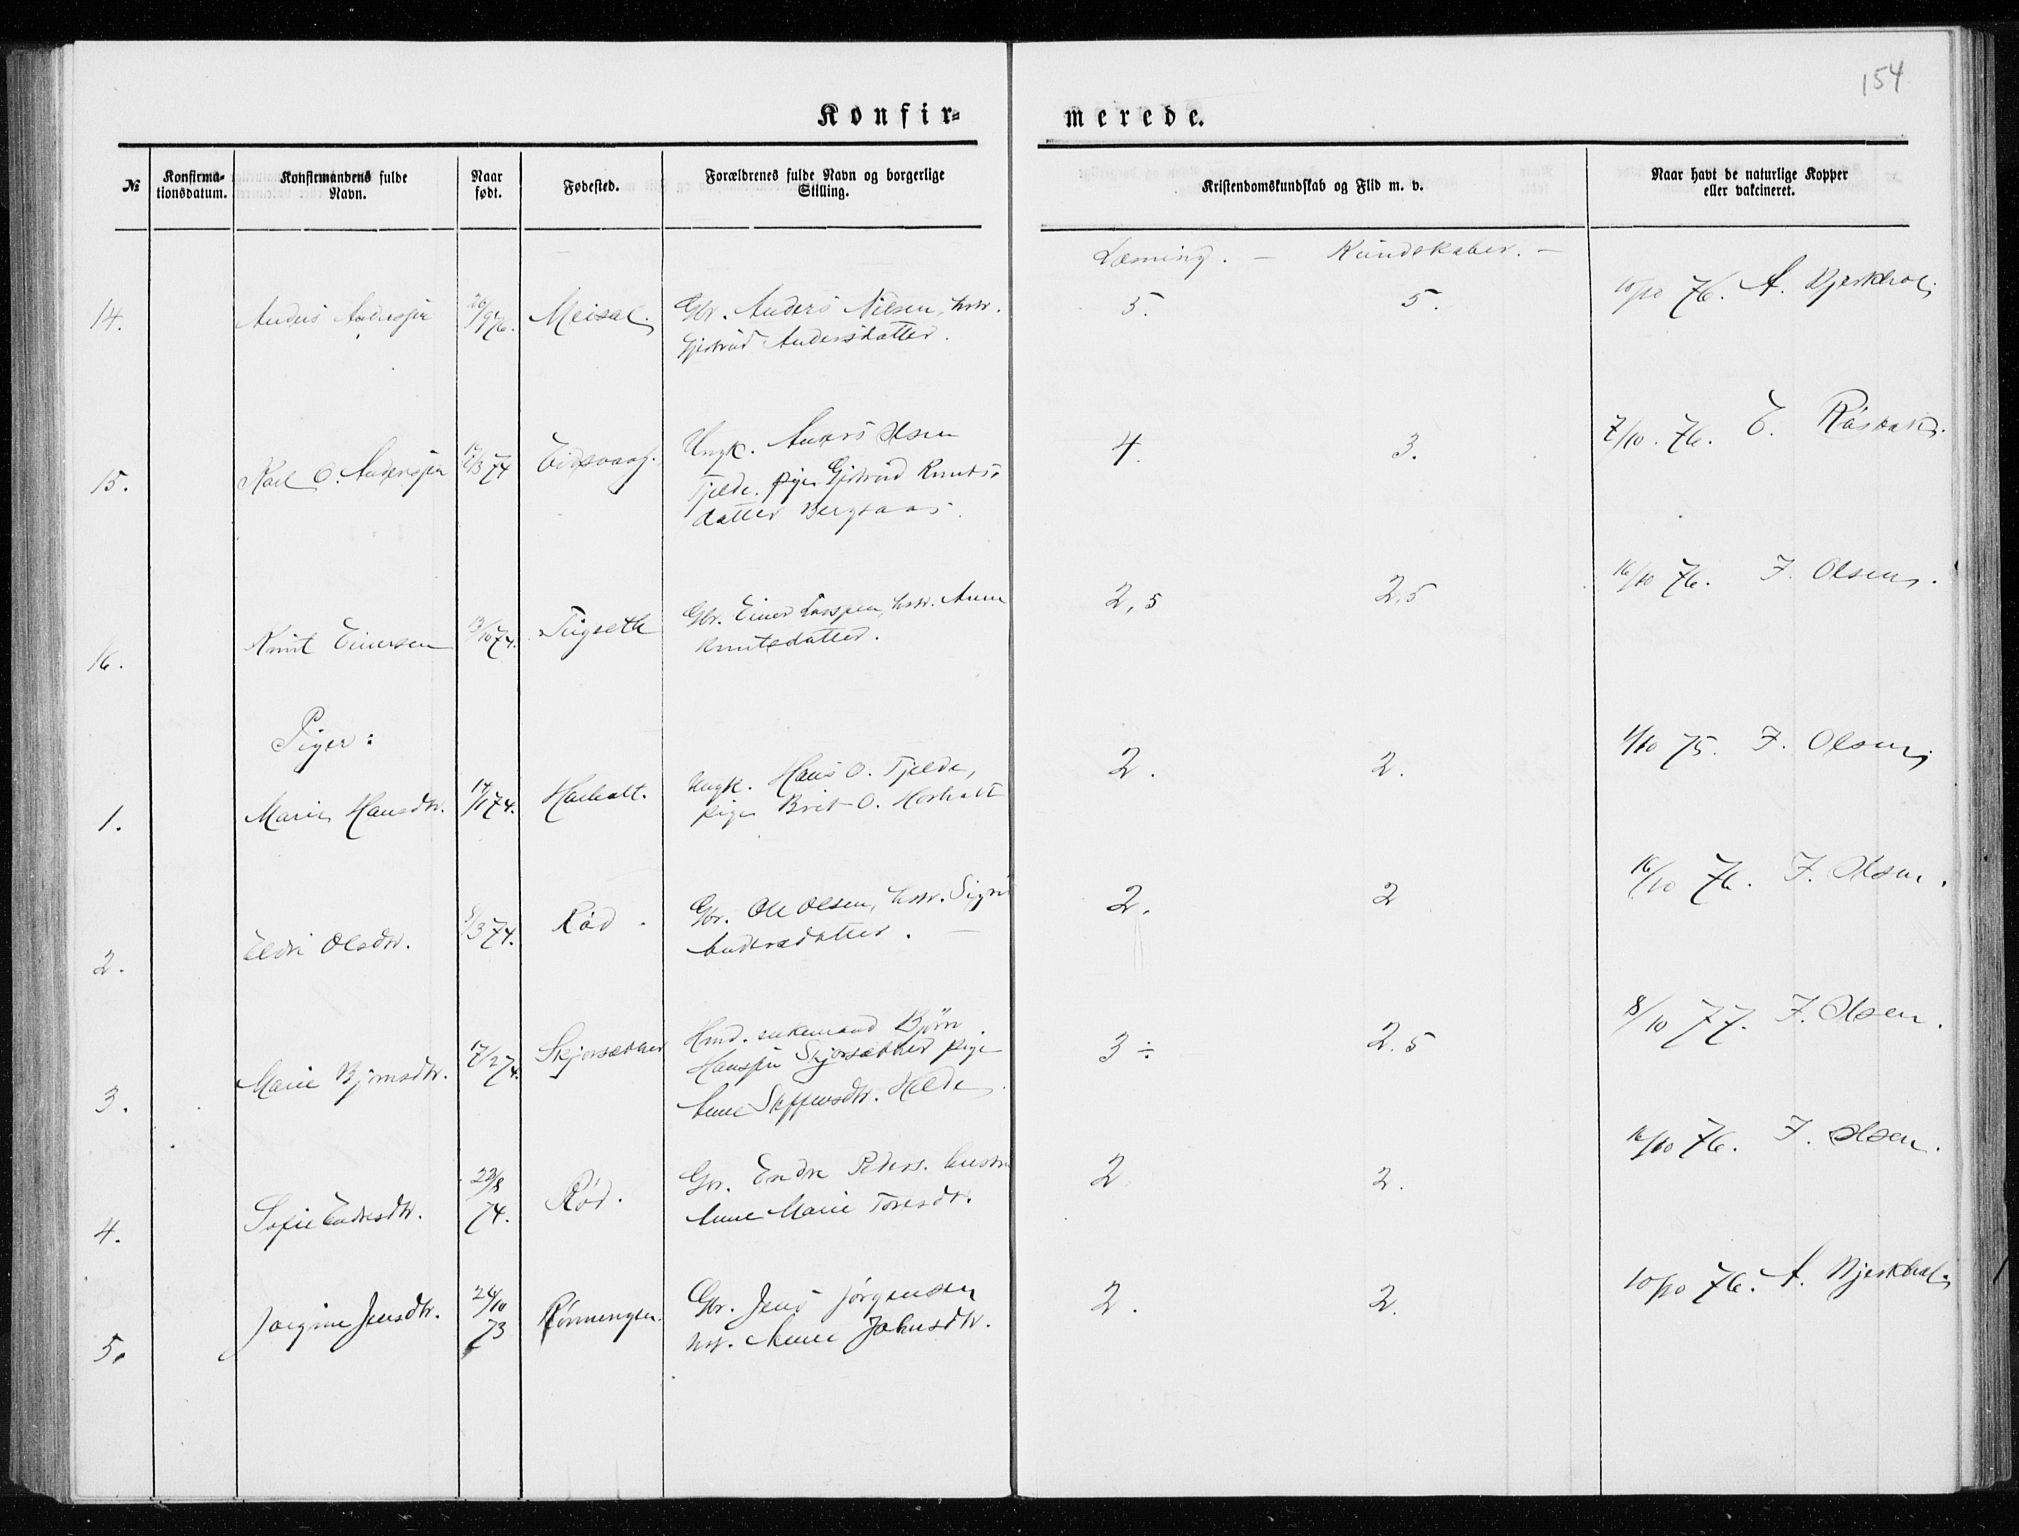 154
Konfir=
merede.
№
Konfirma-
tionsdatum.
Konfirmandens fulde
Navn.
Naar
født.
Fødested.
Forældrenes fulde Navn og borgerlige
Stilling.
Kristendomskundskab og Flid m. v.
Naar havt de naturlige Kopper
eller vakcineret.
Læsning. — Kundskaber. —
14. Anders Andersen Meisal. Gbr. Anders Nilsen, hstr. 5. 5. 10/10 76. A.
Gjertrud Andersdatter.
15. Karl O. Andersen 12/3 74 Eidsvaag. Ungk. Anders Olsen 4. 3. 7/10. 76. E.
Tjelde. pige Gjertrud Knuts-
datter Bergsaas.
16. Knut Einersen 13/10 74. Tugseth Gbr. Einer Larsen, hstr. Anne 2,5 2,5 16/10 76. F. Olsen.
Knutsdatter.
Piger:
1. Marie Hansdtr. 14/1 74. Harhalt. Ungk. Hans O. Tjelde, 2. 2. 1/10 75. F. Olsen.
pige Brit O. Horhalt
2. Eldri Olsdtr. 8/3 74. Rød. Gbr. Ole Olsen, hstr. Sigri 2. 2 16/10 76. F. Olsen.
Andersdatter. —
3. Marie Bjørnsdtr. 17/2 74. Skjorsætter Hmd. enkemand Bjørn 3÷ 2.5 8/10 77. F. Olsen.
Hansen Skjorsætter pige
Anne Steffensdtr. Hilde.
4. Sofie Endresdtr. 23/8 74. Rød. Gbr. Endre Peders. hustru 2 2. 16/10 76. F. Olsen.
Anne Marie Toresdtr.
5. Jorgine Jensdtr. 24/10 73 Rønningen. Gbr. Jens Jørgensen 2. 2. 10/10 76. A.
hst. Anne Johnsdtr.